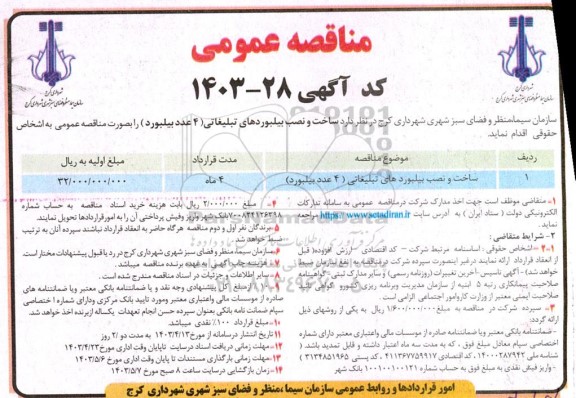 مناقصه عمومی
کد آگهی ۲۸-۱۴۰۳
سازمان سیما،منظر و فضای سبز شهری شهرداری کرج در نظر دارد ساخت و نصب بیلبوردهای تبلیغاتی( ۴ عدد بیلبورد ) را بصورت مناقصه عمومی به اشخاص
حقوقی اقدام نماید.
ردیف موضوع مناقصه مدت قرارداد مبلغ اولیه به ریال
۱ ساخت و نصب بیلبورد های تبلیغاتی ( ۴ عدد بیلبورد) ۴ ماه ۳۲/۰۰۰/۰۰۰/۰۰۰
۱- متقاضی موظف است جهت اخذ مدارک شرکت در مناقصه عمومی به سامانه تدارکات
الکترونیکی دولت ( ستاد ایران ) به آدرس سایت https://www.setadiran.ir مراجعه
نماید.
۲- شرایط متقاضی :
۲-۱- اشخاص حقوقی : اساسنامه مرتبط شرکت – کد اقتصادی – ارزش افزوده( قبل
از انعقاد قرارداد ارائه نمایند در غیر اینصورت سپرده شرکت در مناقصه به نفع سازمان ضبط
خواهد شد) – آگهی تاسیس – آخرین تغییرات (روزنامه رسمی) و سایر مدارک ثبتی - گواهینامه
صلاحیت پیمانکاری رتبه ۵ ابنیه از سازمان مدیریت وبرنامه ریزی کشور و گواهی تایید
صلاحیت ایمنی معتبر از وزارت کار وامور اجتماعی الزامی است .
۳- سپرده شرکت در مناقصه به مبلغ ۱/۶۰۰/۰۰۰/۰۰۰ ریال به یکی از روشهای ذیل
ارائه گردد:
- ضمانتنامه بانکی معتبر ویا ضمانتنامه صادره از موسسات مالی واعتباری معتبر دارای شماره
اختصاصی سپام معادل مبلغ فوق ، که به مدت سه ماه اعتبار داشته و قابل تمدید باشد. (
شناسه ملی ۱۴۰۰۰۲۸۷۹۴۲ ، کد اقتصادی ۴۱۱۳۶۷۷۵۹۹۱۷ ، کد پستی ۳۱۳۴۸۵۱۹۶۵ )
- واریز فیش نقدی به مبلغ فوق به حساب شماره ۱۰۰۱۰۰۱۰۰۱۲۱ بانک شهر
۴- مبلغ ۲/۰۰۰/۰۰۰ ریال بابت هزینه خرید اسناد مناقصه به حساب شماره
بانک شهر واریز وفیش پرداختی آن را به امور قراردادها تحویل نمایند.
۵- برندگان نفر اول و دوم مناقصه هرگاه حاضر به انعقاد قرارداد نباشند سپرده آنان به ترتیب
ضبط خواهد شد.
۶- سازمان سیما،منظر و فضای سبز شهری شهرداری کرج در رد یا قبول پیشنهادات مختار است.
۷- هزینه چاپ آگهی به عهده برنده مناقصه میباشد.
۸- سایر اطلاعات و جزئیات در اسناد مناقصه مندرج شده است .
صادره از موسسات مالی واعتباری معتبر ومورد تایید بانک مرکزی ودارای شماره اختصاصی
سپام ضمانت نامه بانکی بعنوان سپرده حسن انجام تعهدات یکساله از برنده اخذ خواهد شد.
۱۰- مبلغ قرارداد ۱۰۰٪ نقدی میباشد.
۱۱- تاریخ انتشار در سامانه از مورخ ۱۴۰۳/۴/۱۳ به مدت دو /۲ روز
۱۲- مهلت زمانی دریافت اسناد در سایت تا پایان وقت اداری مورخ ۱۴۰۳/۴/۲۳
۱۳- مهلت زمانی بارگذاری مستندات تا پایان وقت اداری مورخ ۱۴۰۳/۵/۶
۱۴- زمان بازگشایی در سایت ساعت ۸ صبح مورخ ۱۴۰۳/۵/۷
امور قراردادها و روابط عمومی سازمان سیما ،منظر و فضای سبز شهری شهرداری کرج